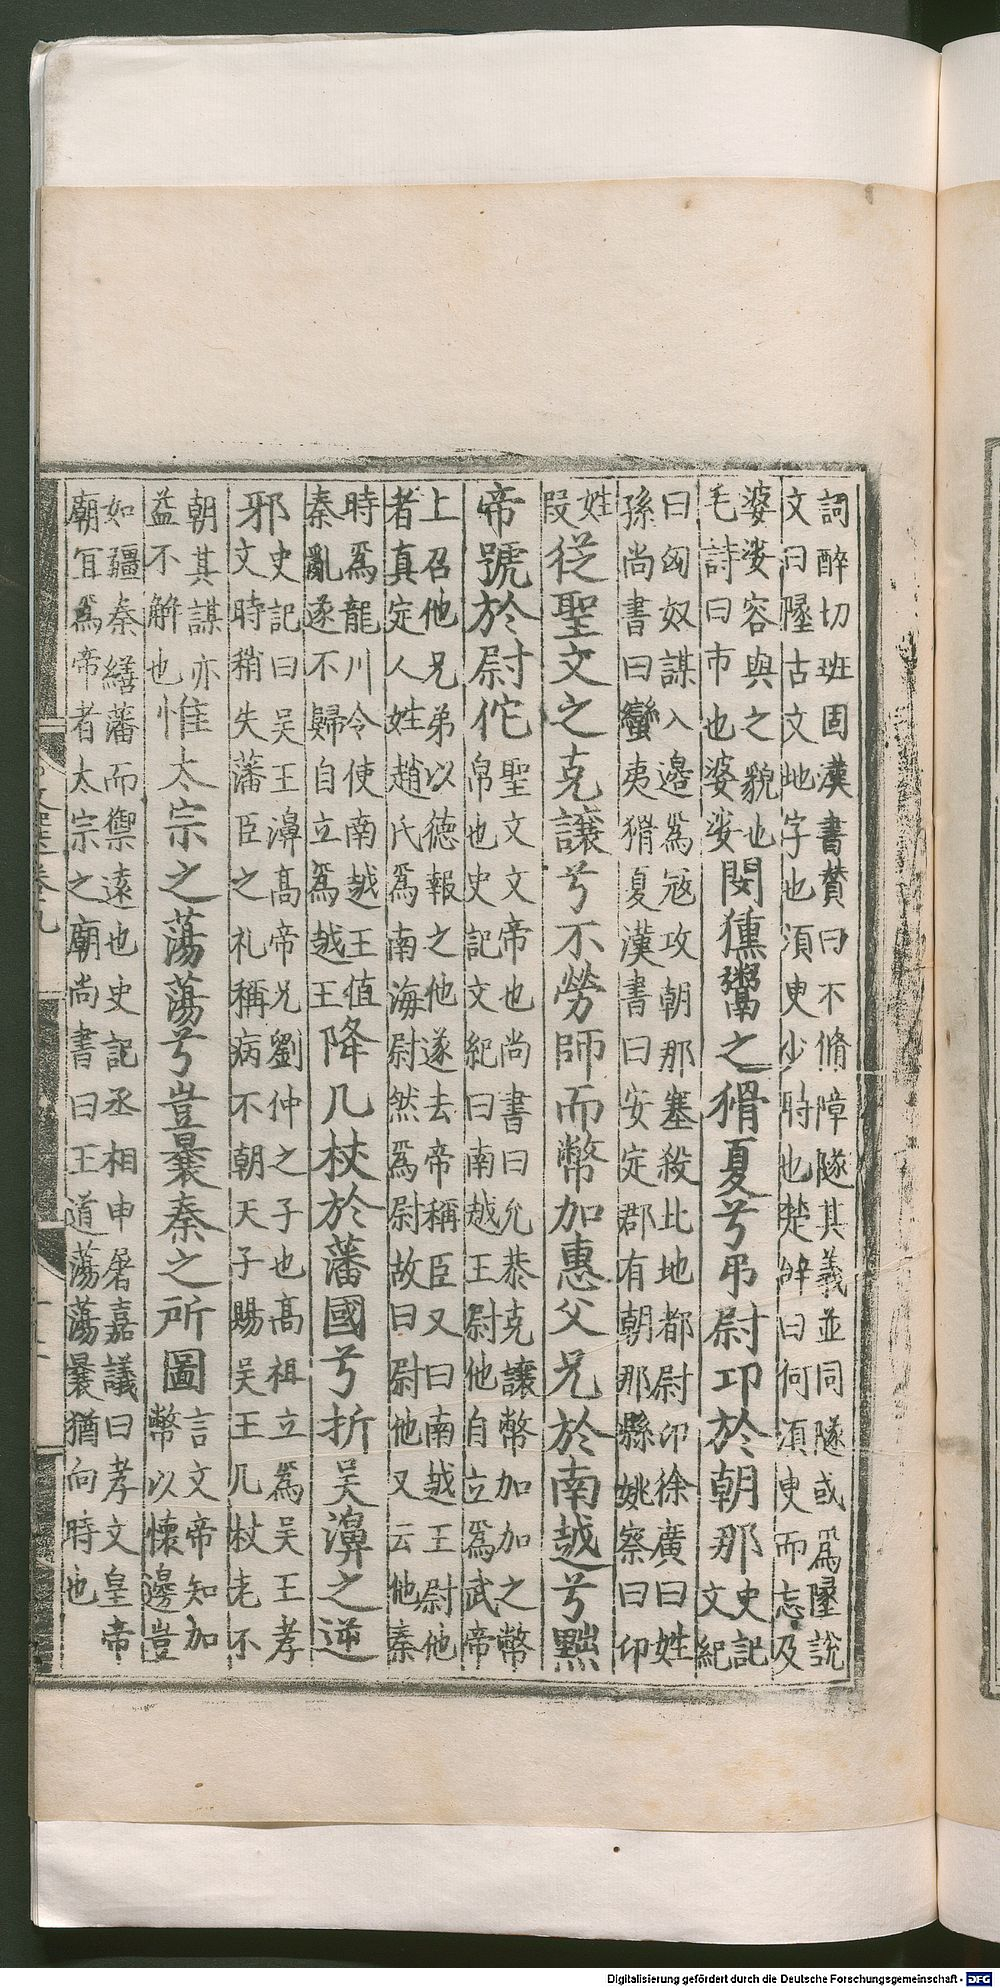 詞醉切班固漢書賛曰不脩障隧其義並同隧或爲墬說
文曰墬古文地字也湏臾少時也楚辭曰何湏臾而忘及
婆娑容與之貌也
毛詩曰市也婆娑
閔獯鬻之猾夏兮弔尉卭於朝那
史記
文紀
曰匈奴謀入邊爲寇攻朝那塞殺北地都尉卬徐廣曰姓
孫尚書曰蠻夷猾夏漢書曰安定郡有朝那縣姚察曰卬
姓
段
從聖文之克讓兮不勞師而幣加惠父兄於南越兮黜
帝號於尉佗
聖文文帝也尚書曰允恭克讓幣加加之幣
帛也史記文紀曰南越王尉他自立爲武帝
上召他兄弟以德報之他遂去帝稱臣又曰南越王尉他
者真定人姓趙氏爲南海尉然爲尉故曰尉他又云他秦
時爲龍川令使南越王值
秦亂遂不歸自立爲越王
降几杖於藩國兮折吳濞之逆
邪
史記曰吳王濞高帝兄劉仲之子也高祖立爲吳王孝
文時稍失藩臣之礼稱病不朝天子賜吳王几杖老不
朝其謀亦
益不解也
惟太宗之蕩蕩兮豈曩秦之所圖
言文帝知加
幣以懷邊豈
如疆秦繕藩而禦遠也史記丞相申屠嘉議曰孝文皇帝
廟宜爲帝者太宗之廟尚書曰王道蕩蕩曩猶向時也
Digitalisierung gefördert durch die Deutsche Forschungsgemeinschaft - DFG